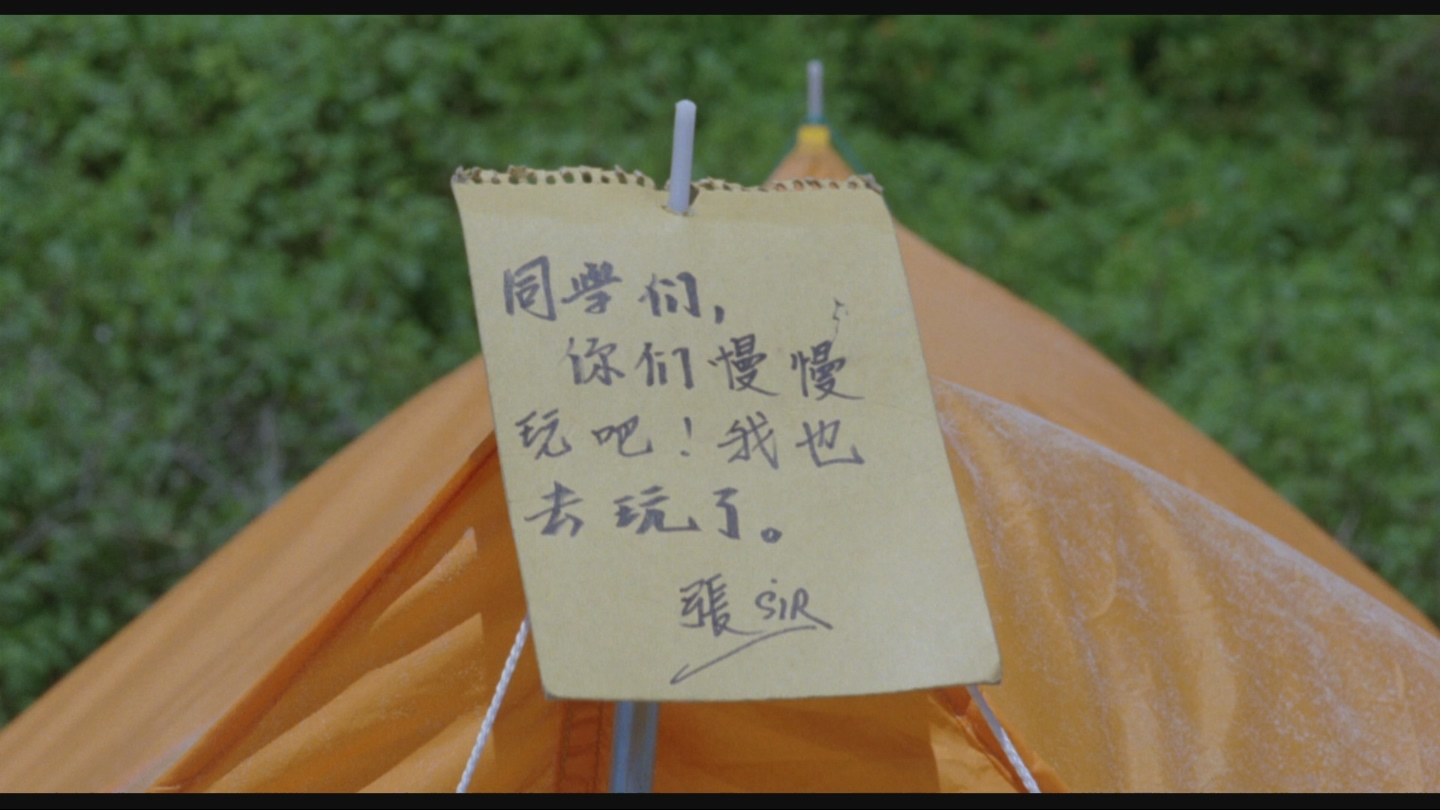 同學们,
你们慢慢
玩吧!我也
去玩了。
張 SIR